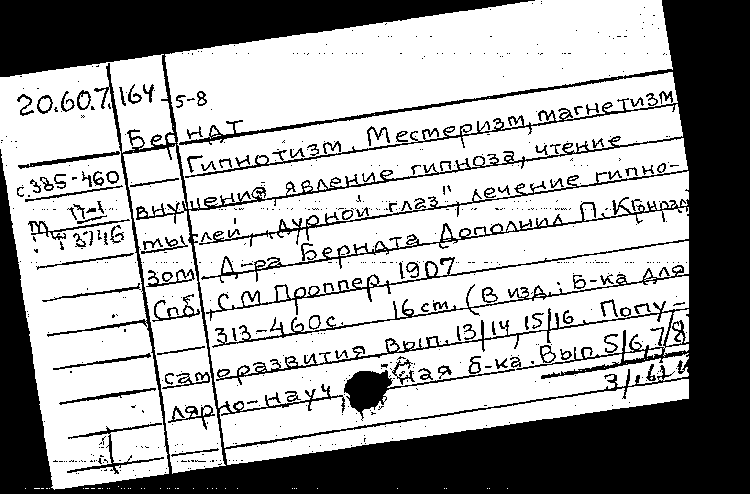 20.60.7.164-5-8
Берндт
Гипнотизм. Месмеризм, магнетизм,
с.385-460
внушение, явление гипноза, чтение
П-1
мыслей, „дурной глаз", лечение гипно-
3746
зом Д-ра Берндта Дополнил П. Конрад
Спб., С.М. Проппер, 1907
313-460с. 16 cm. (В изд.: Б-ка для
саморазвития. Вып. 13/14, 15/16. Попу-
лярно-науч ная б-ка. Вып. 5/6, 7/8